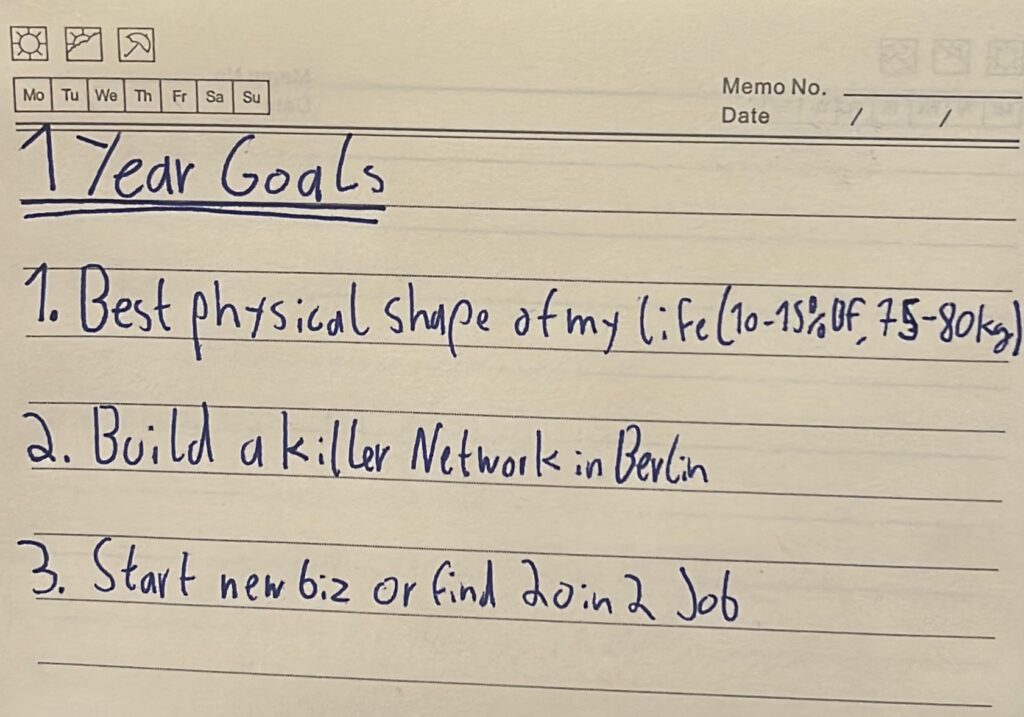 Mo Tu We Th Fr Sa Su
Memo No.
Date / /
1 Year Goals
1. Best physical shape of my life (10-15% BF, 75-80kg)
2. Build a killer Network in Berlin
3. Start new biz or find 20in2 Job